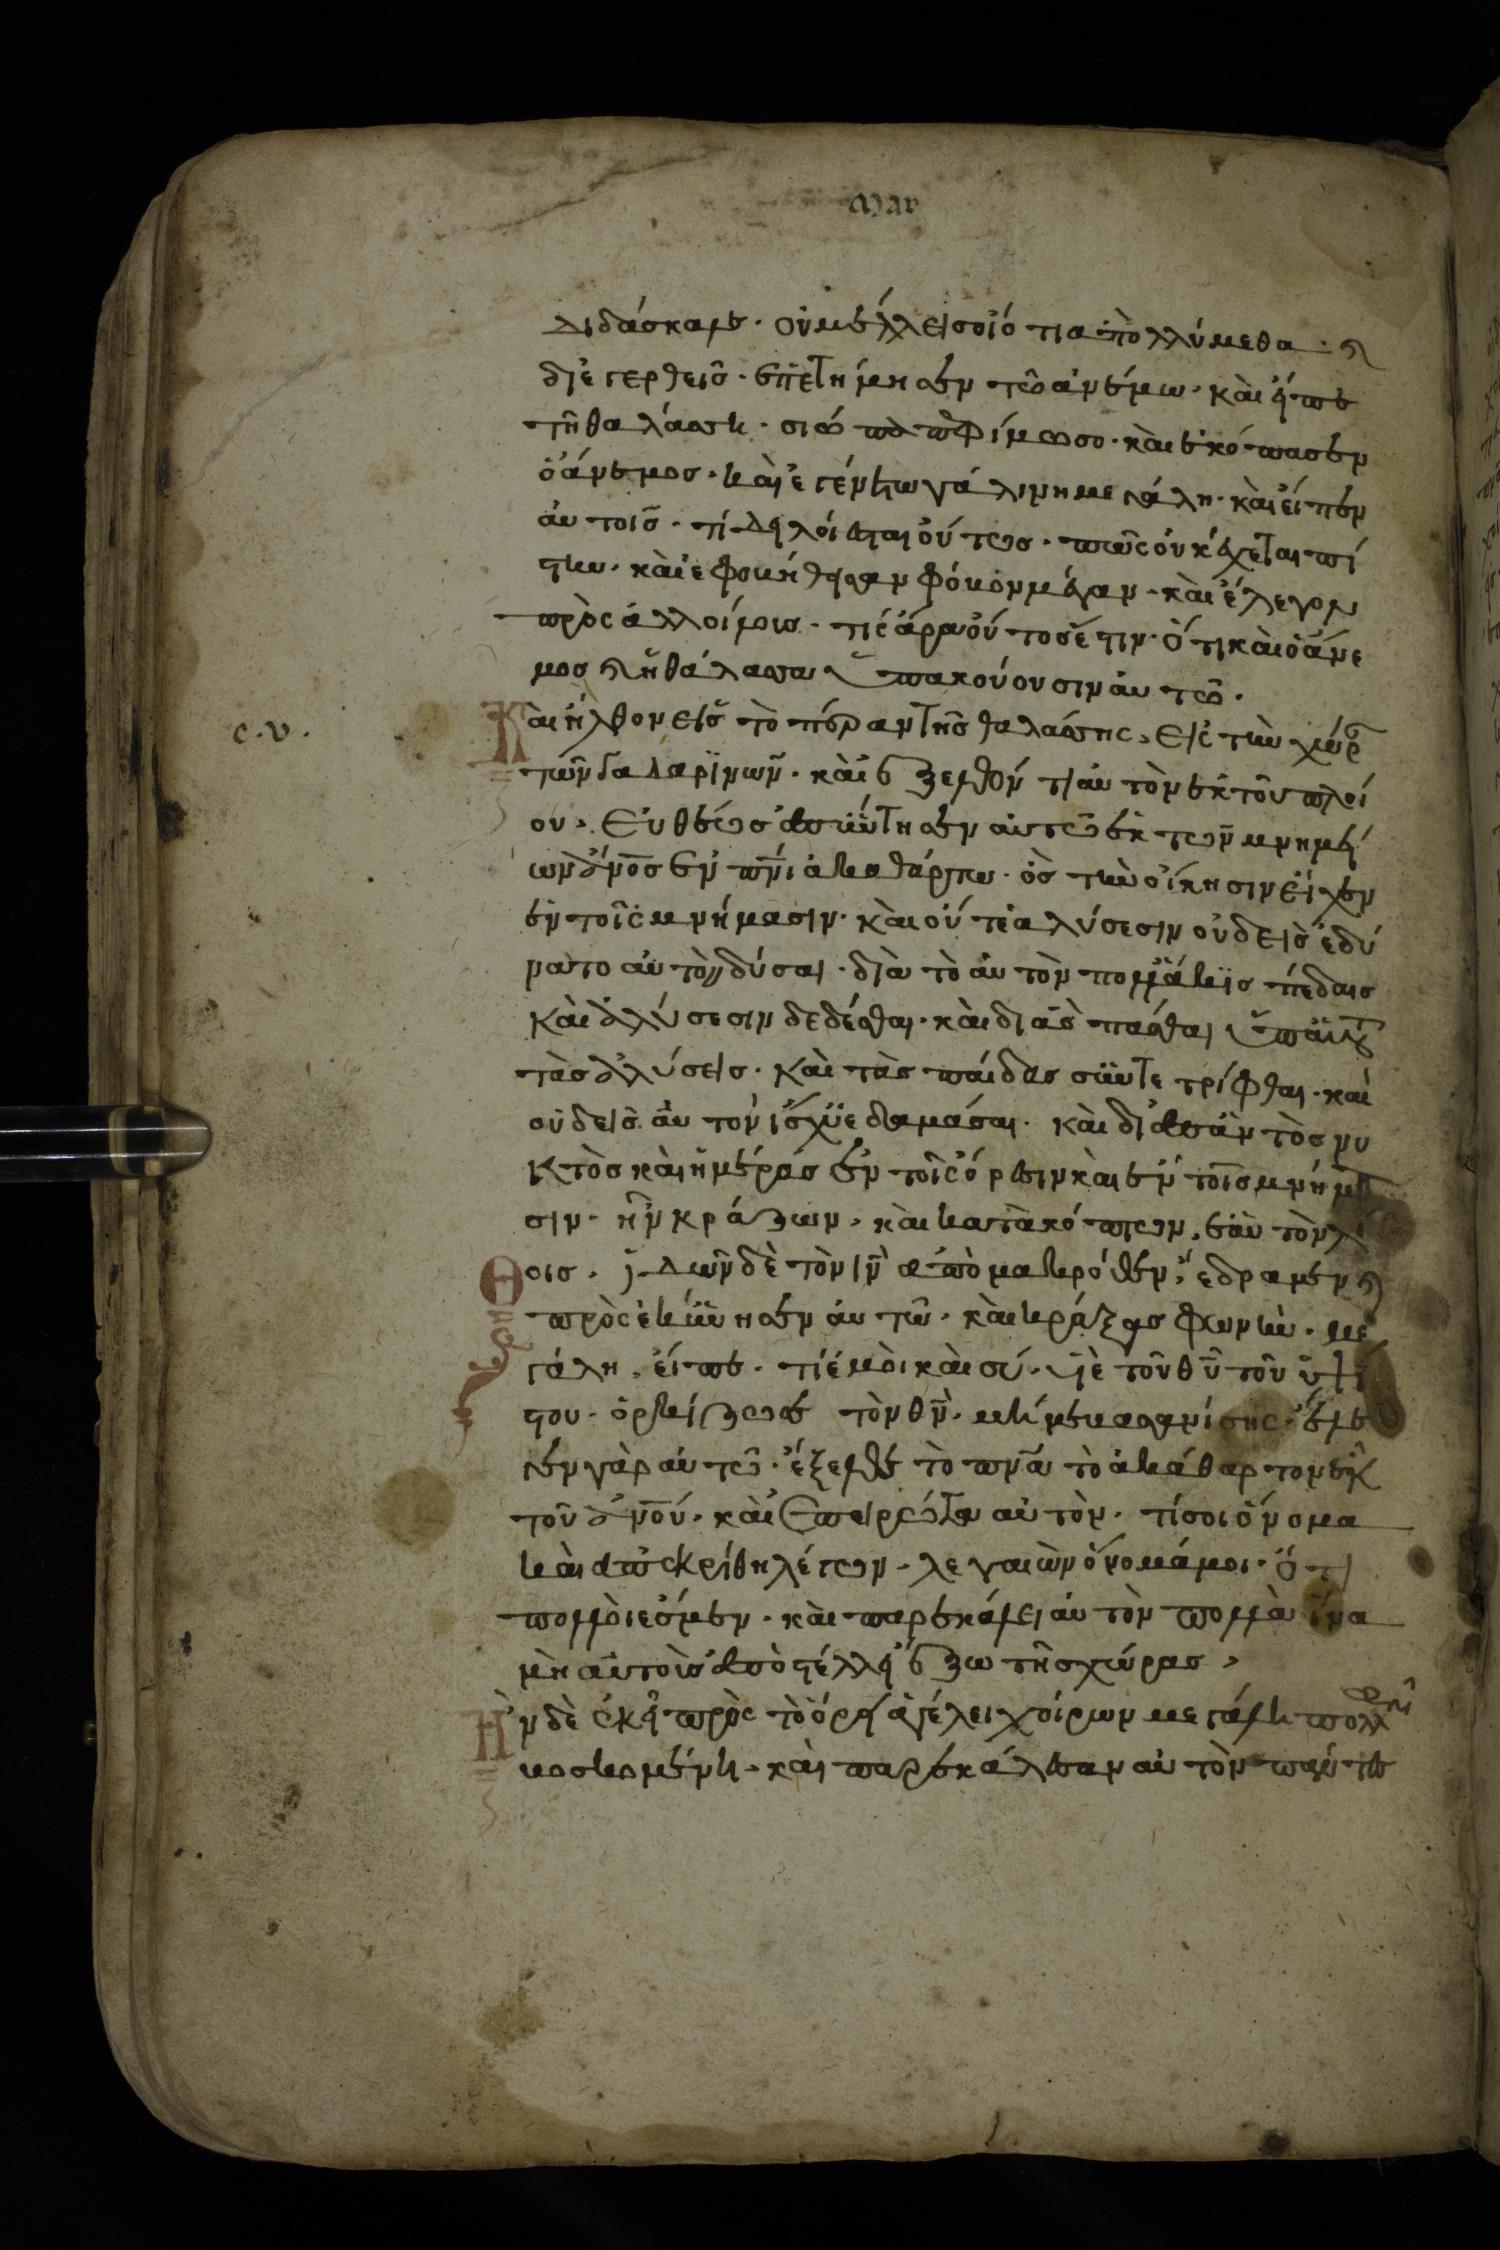 Mar
διδάσκαλε· οὐ μέλλει σοι ὅτι ἀπολλύμεθα· κ
διεγερθεὶς· ἐπετίμησεν τῶ ἀνέμω· καὶ εἶπε
τῆ θαλάσση· σιώπα πεφίμωσο· καὶ ἐκόπασεν
ὁ ἄνεμος· καὶ ἐγένετω γαλίνη μεγάλη· καὶ εἶπεν
αὐτοῖς· τί δειλοί ἐσται οὕτως· πῶς οὐκ ἔχεται πί
στιν· καὶ ἐφοβήθησαν φόβον μέγαν· καὶ ἔλεγον
πρὸς ἀλλοίλους· τίς ἄρα οὗτος ἐστιν· ὅτι καὶ ὁ ἄνε
μος κ ἡ θάλασσα ὑπακούουσιν αὐτῶ·
c. v. Καὶ ἦλθον εἰς τὸ πέραν τῆς θαλάσσης, εἰς τὴν χώρ
τῶν Γαδαρινῶν· καὶ ἐξελθόντι αὐτὸν ἐκ τοῦ πλοί
ου, εὐθέως ἀπήντησεν αὐτῶ ἐκ τῶν μνημεί
ων ἄνος ἐν πνι ἀκαθάρτω· ὃς τὴν οἴκησιν εἶχεν
ἐν τοῖς μνήμασιν· καὶ οὔτε ἁλύσεσιν οὐδεὶς ἐδύ
νατο αὐτὸν δύσαι· διὰ τὸ αὐτὸν πολλάκις πέδαις
καὶ ἁλύσεσιν δεδέσθαι· καὶ διασπάσθαι ὑπ αὐτ
τὰς ἁλύσεις· καὶ τὰς παίδας συντετρίφθαι· καὶ
οὐδεὶς αὐτὸν ἴσχυε δαμάσαι· καὶ διαπαντὸς νυ
κτὸς καὶ ἡμέρας ἐν τοῖς ὄρεσιν καὶ ἐν τοῖς μνήμα
σιν· ἦν κράζων, καὶ κατακόπτων ἑαυτὸν λί
θοις· ἰδὼν δὲ τὸν ιν ἀπὸ μακρόθεν, ἔδραμεν κ
προσεκύνησεν αὐτῶ· καὶ κράξας φωνὴ· με
γάλη, εἶπε· τί ἐμοὶ καὶ σύ· υἱὲ τοῦ θυ τοῦ ὑψί
στου· ὁρκίζω σε τὸν θν· μή με βασανίσης· ἔλε
γεν γὰρ αὐτῶ· ἔξελθε τὸ πνα τὸ ἀκάθαρτον ἐκ
τοῦ ἄνου· καὶ ἐπειρώτα αὐτὸν· τί σοι ὄνομα
καὶ ἀπεκρίθη λέγων, λεγαιὼν ὄνομά μοι· ὅτι
πολλοί ἐσμεν· καὶ παρεκάλει αὐτὸν πολλὰ ἵνα
μὴ αὐτοὺς ἀποστέλλει ἔξω τῆς χώρας,
Ην δὲ ἐκεῖ πρὸς τὸ ὄρει ἀγέλει χοίρων μεγάλη πολλ
βοσκομένη· καὶ παρεκάλεσαν αὐτὸν πάντε